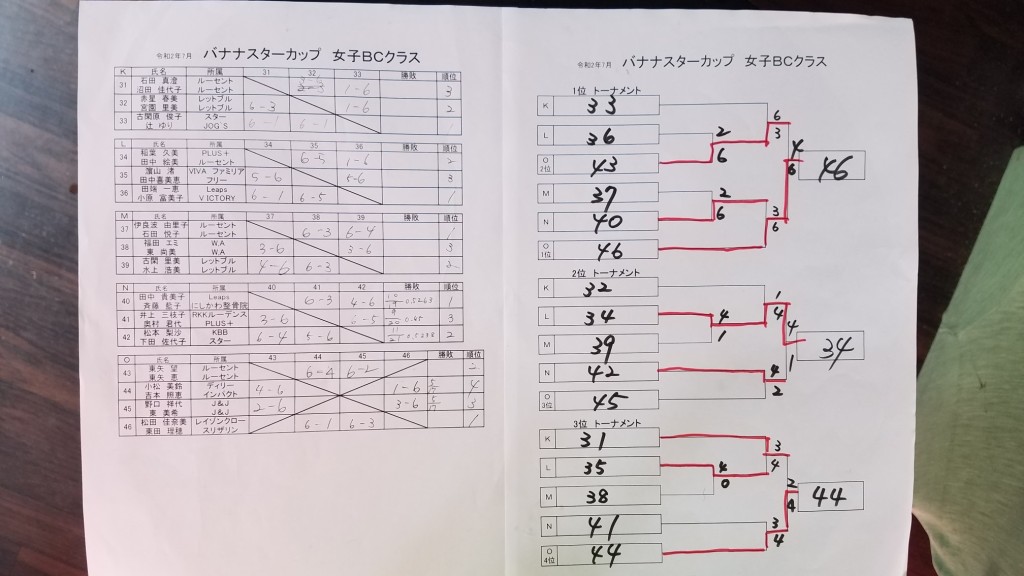 令和2年7月 バナナスターカップ 女子BCクラス
K 氏名 所属 31 32 33 勝敗 順位
31 石田 真澄 ルーセント 1-6 3
沼田 佳代子 ルーセント
32 赤星 春美 レットブル 6-3 1-6 2
宮園 里美 レットブル
33 古閑原 俊子 スター 6-1 6-1 1
辻 ゆり JOG'S
L 氏名 所属 34 35 36 勝敗 順位
34 稲葉 久美 PLUS+ 6-5 1-6 2
田中 絵美 ルーセント
35 濵山 渚 VIVA ファミリア 5-6 5-6 3
田中喜美恵 フリー
36 田端 一恵 Leaps 6-1 6-5 1
小原 富美子 VICTORY
M 氏名 所属 37 38 39 勝敗 順位
37 伊良波 由里子 ルーセント 6-3 6-4 1
石田 悦子 ルーセント
38 福田 エミ W.A 3-6 3-6 3
東 尚美 W.A
39 古閑 里美 レットブル 4-6 6-3 2
水上 浩美 レットブル
N 氏名 所属 40 41 42 勝敗 順位
40 田中 貴美子 Leaps 6-3 4-6 10/19 0.5263 1
斉藤 藍子 にしかわ整骨院
41 井上 三枝子 RKKルーデンス 3-6 6-5 9/20 0.45 3
奥村 君代 PLUS+
42 松本 梨沙 KBB 6-4 5-6 11/21 0.5238 2
下田 佐代子 スター
O 氏名 所属 43 44 45 46 勝敗 順位
43 東矢 望 ルーセント 6-4 6-2 2
東矢 恵 ルーセント
44 小松 美鈴 ディリー 4-6 1-6 4
吉本 照恵 インパクト
45 野口 祥代 J&J 2-6 3-6 3
東 美希 J&J
46 松田 佳奈美 レイゾンクロー 6-1 6-3 1
東田 理穂 スリザリン
令和2年7月 バナナスターカップ 女子BCクラス
1位 トーナメント
K 33
L 36
O 2位 43
M 37
N 40
O 1位 46
2 6
2 6
6 3
3 6
4 6
46
2位 トーナメント
K 32
L 34
M 39
N 42
O 3位 45
4 1
1 4
4 2
4 1
34
3位 トーナメント
K 31
L 35
M 38
N 41
O 4位 44
4 0
3 4
3 4
2 4
44